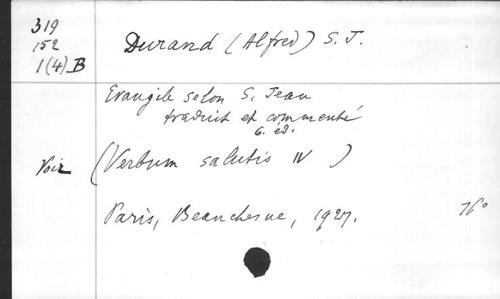 319
152
1(4) B
Durand (Alfred) S. J.
Evangile selon S. Jean
traduit et commenté
6. ed.
Voir (Verbum salutis IV )
Paris, Beauchesne, 1927.
16°